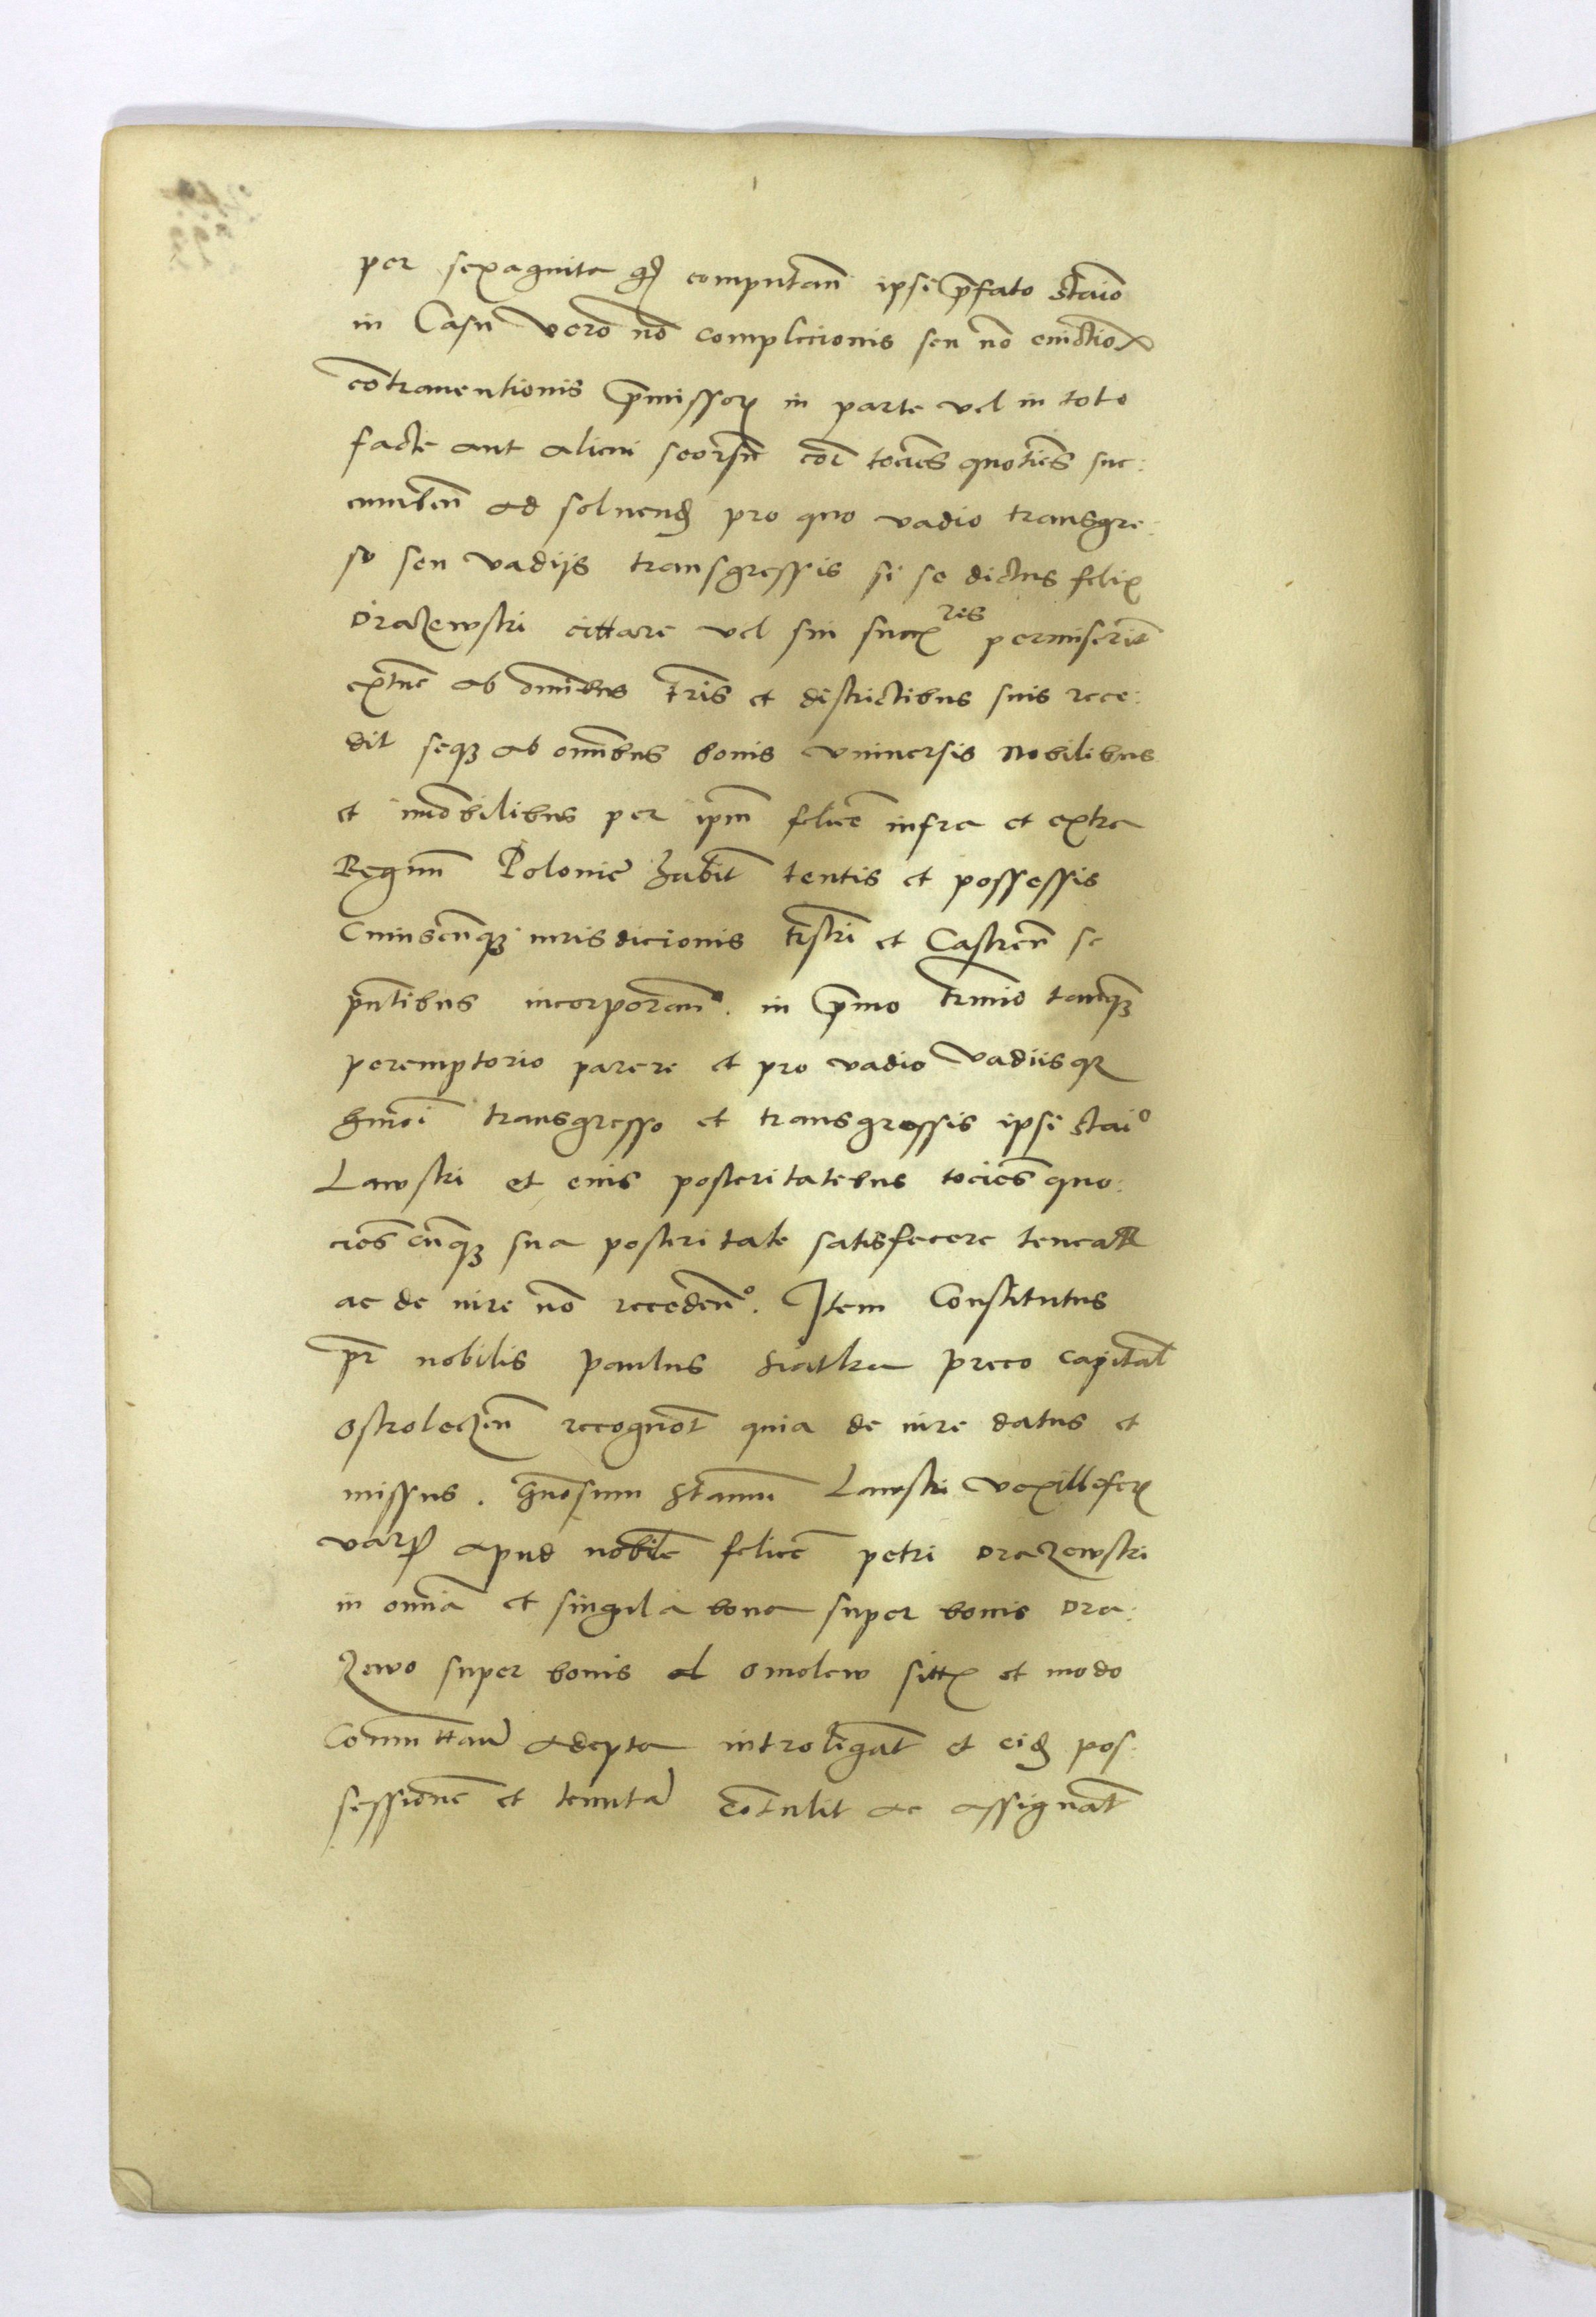 per sexaginta gr computan ipsi p̄fato Stanio
in Casu vero nō complecionis seu nō euictiōx
cōtrauentionis p̄missorꝝ in parte vel in toto
facte aut alicui seorsū cōr tociēs quotiēs suc:
cumbēn ad soluend pro quo vadio transgre:
so seu vadijs transgressis si se dictus felix
Drazewski cittare vel sui succres permiserit
extūc ab omībus tr̄is et districtibus suis rece:
dit seqꝫ ab omībus bonis vniuersis Mobilibus
et imōbilibus per ipm̄ felicē infra et extra
Regnum Polonie habit tentis et possessis
Cuiuscūqꝫ iurisdicionis trstri et Castren̄ se
pn̄tibus incorporan. in p̄mo trmīo tanqꝫ
peremptorio parere et pro vadio vadiisqꝫ
hmōi transgresso et transgressis ipsi Stanio
Lawski et eius posteritatibus tociēs quo:
ciēs cūqꝫ sua posteritate satisfacere teneat
ac de iure nō recedēn°. Item Constitutus
pr̄ nobilis paulus siatka preco capītal
Ostroleczēn recognōt quia de iure datus et
missus. Gnōsum Stanum Lawski vexilliferꝫ
varꝭ apud nobilē felicē petri Drazewski
in omīa et singula bona super bonis Dra:
zewo super bonis al omolew sittꝫ et modo
Committan adepta introligāt et eid pos:
sessionē et tenutā cōtulit ac assignāt